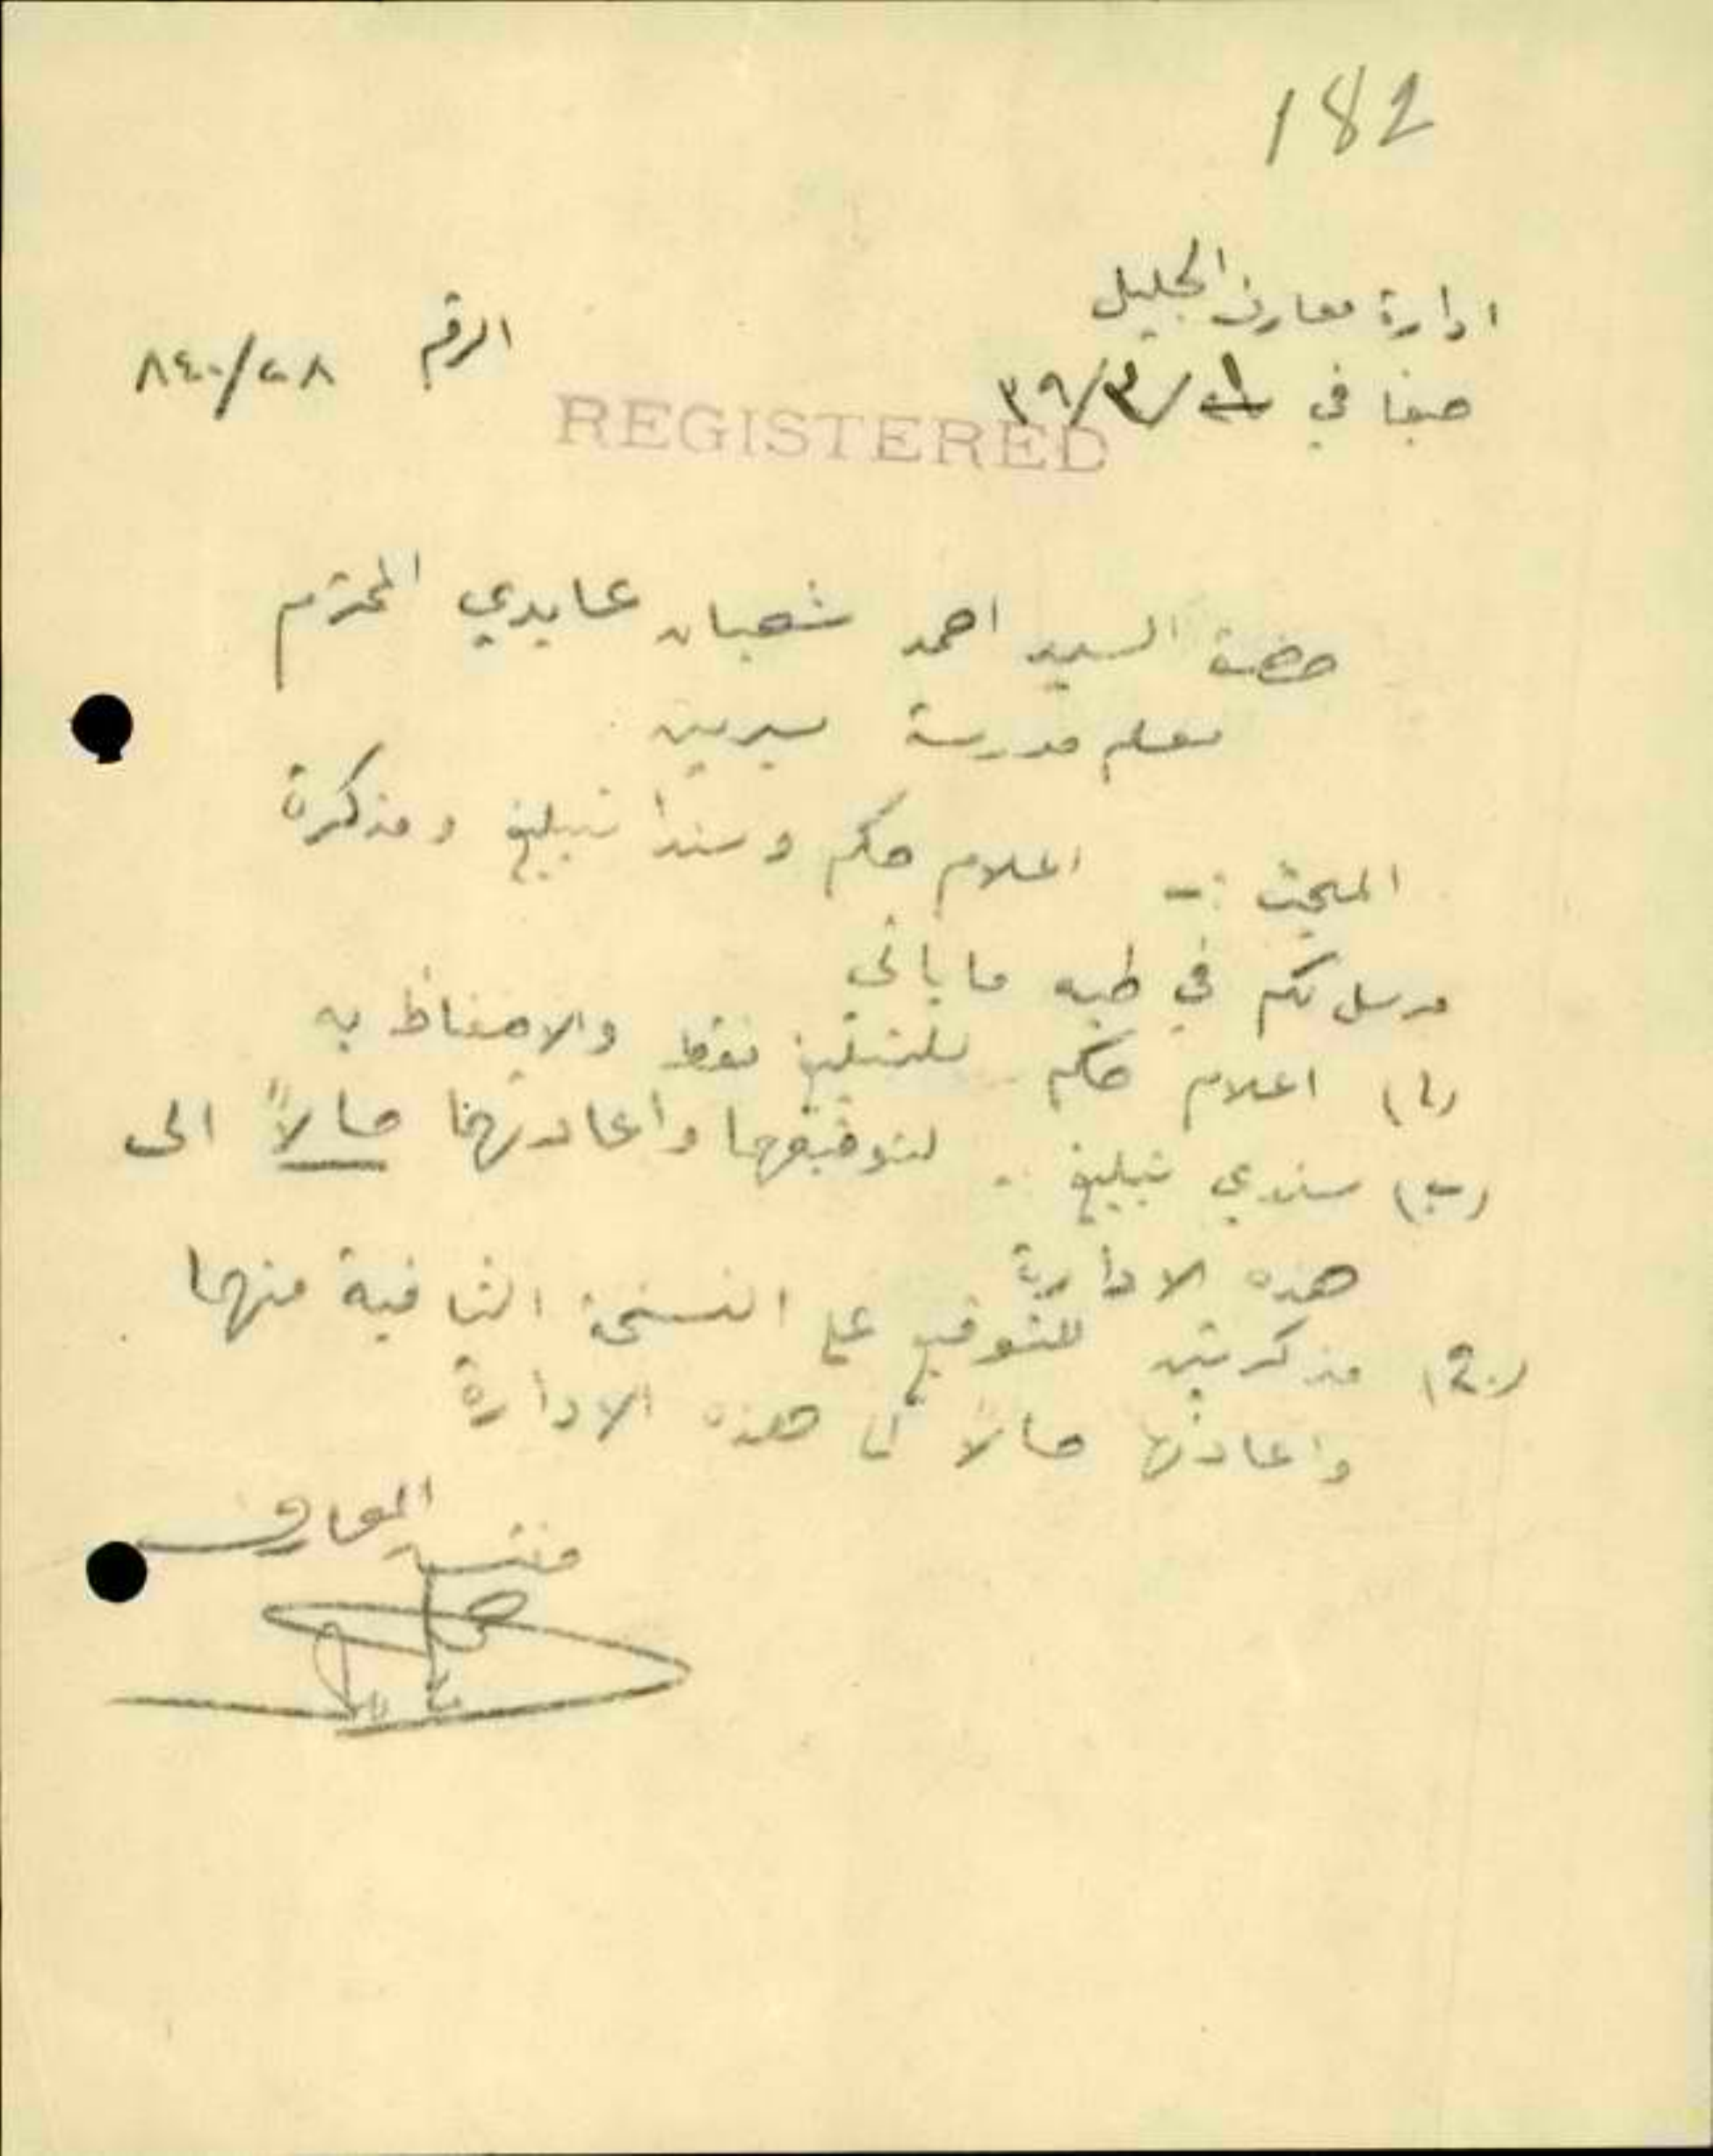 182
ادارة معارف الجليل
صفا في ٣٩/٣/
الرقم ٨٤٠/٢٨
REGISTERED
حضرة السيد احمد شعبان عايدي المحترم
معلم مدرسة سيرين
المبحث :- اعلام حكم وسندا تبليغ ومذكرة
مرسل لكم في طيه ما يأتي
(١) اعلام حكم للتبليغ فقط والاحتفاظ به
(ب) سندي تبليغ .. لتوقيعهما واعادتهما حالاً الى
هذه الادارة
(2) مذكرتين للتوقيع على النسخة الثانية منها
واعادتها حالاً الى هذه الادارة
مفتش المعارف